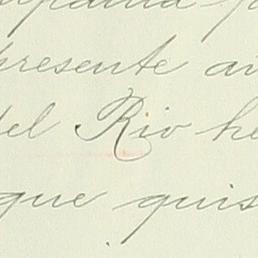 presente
del Rio he
que quis